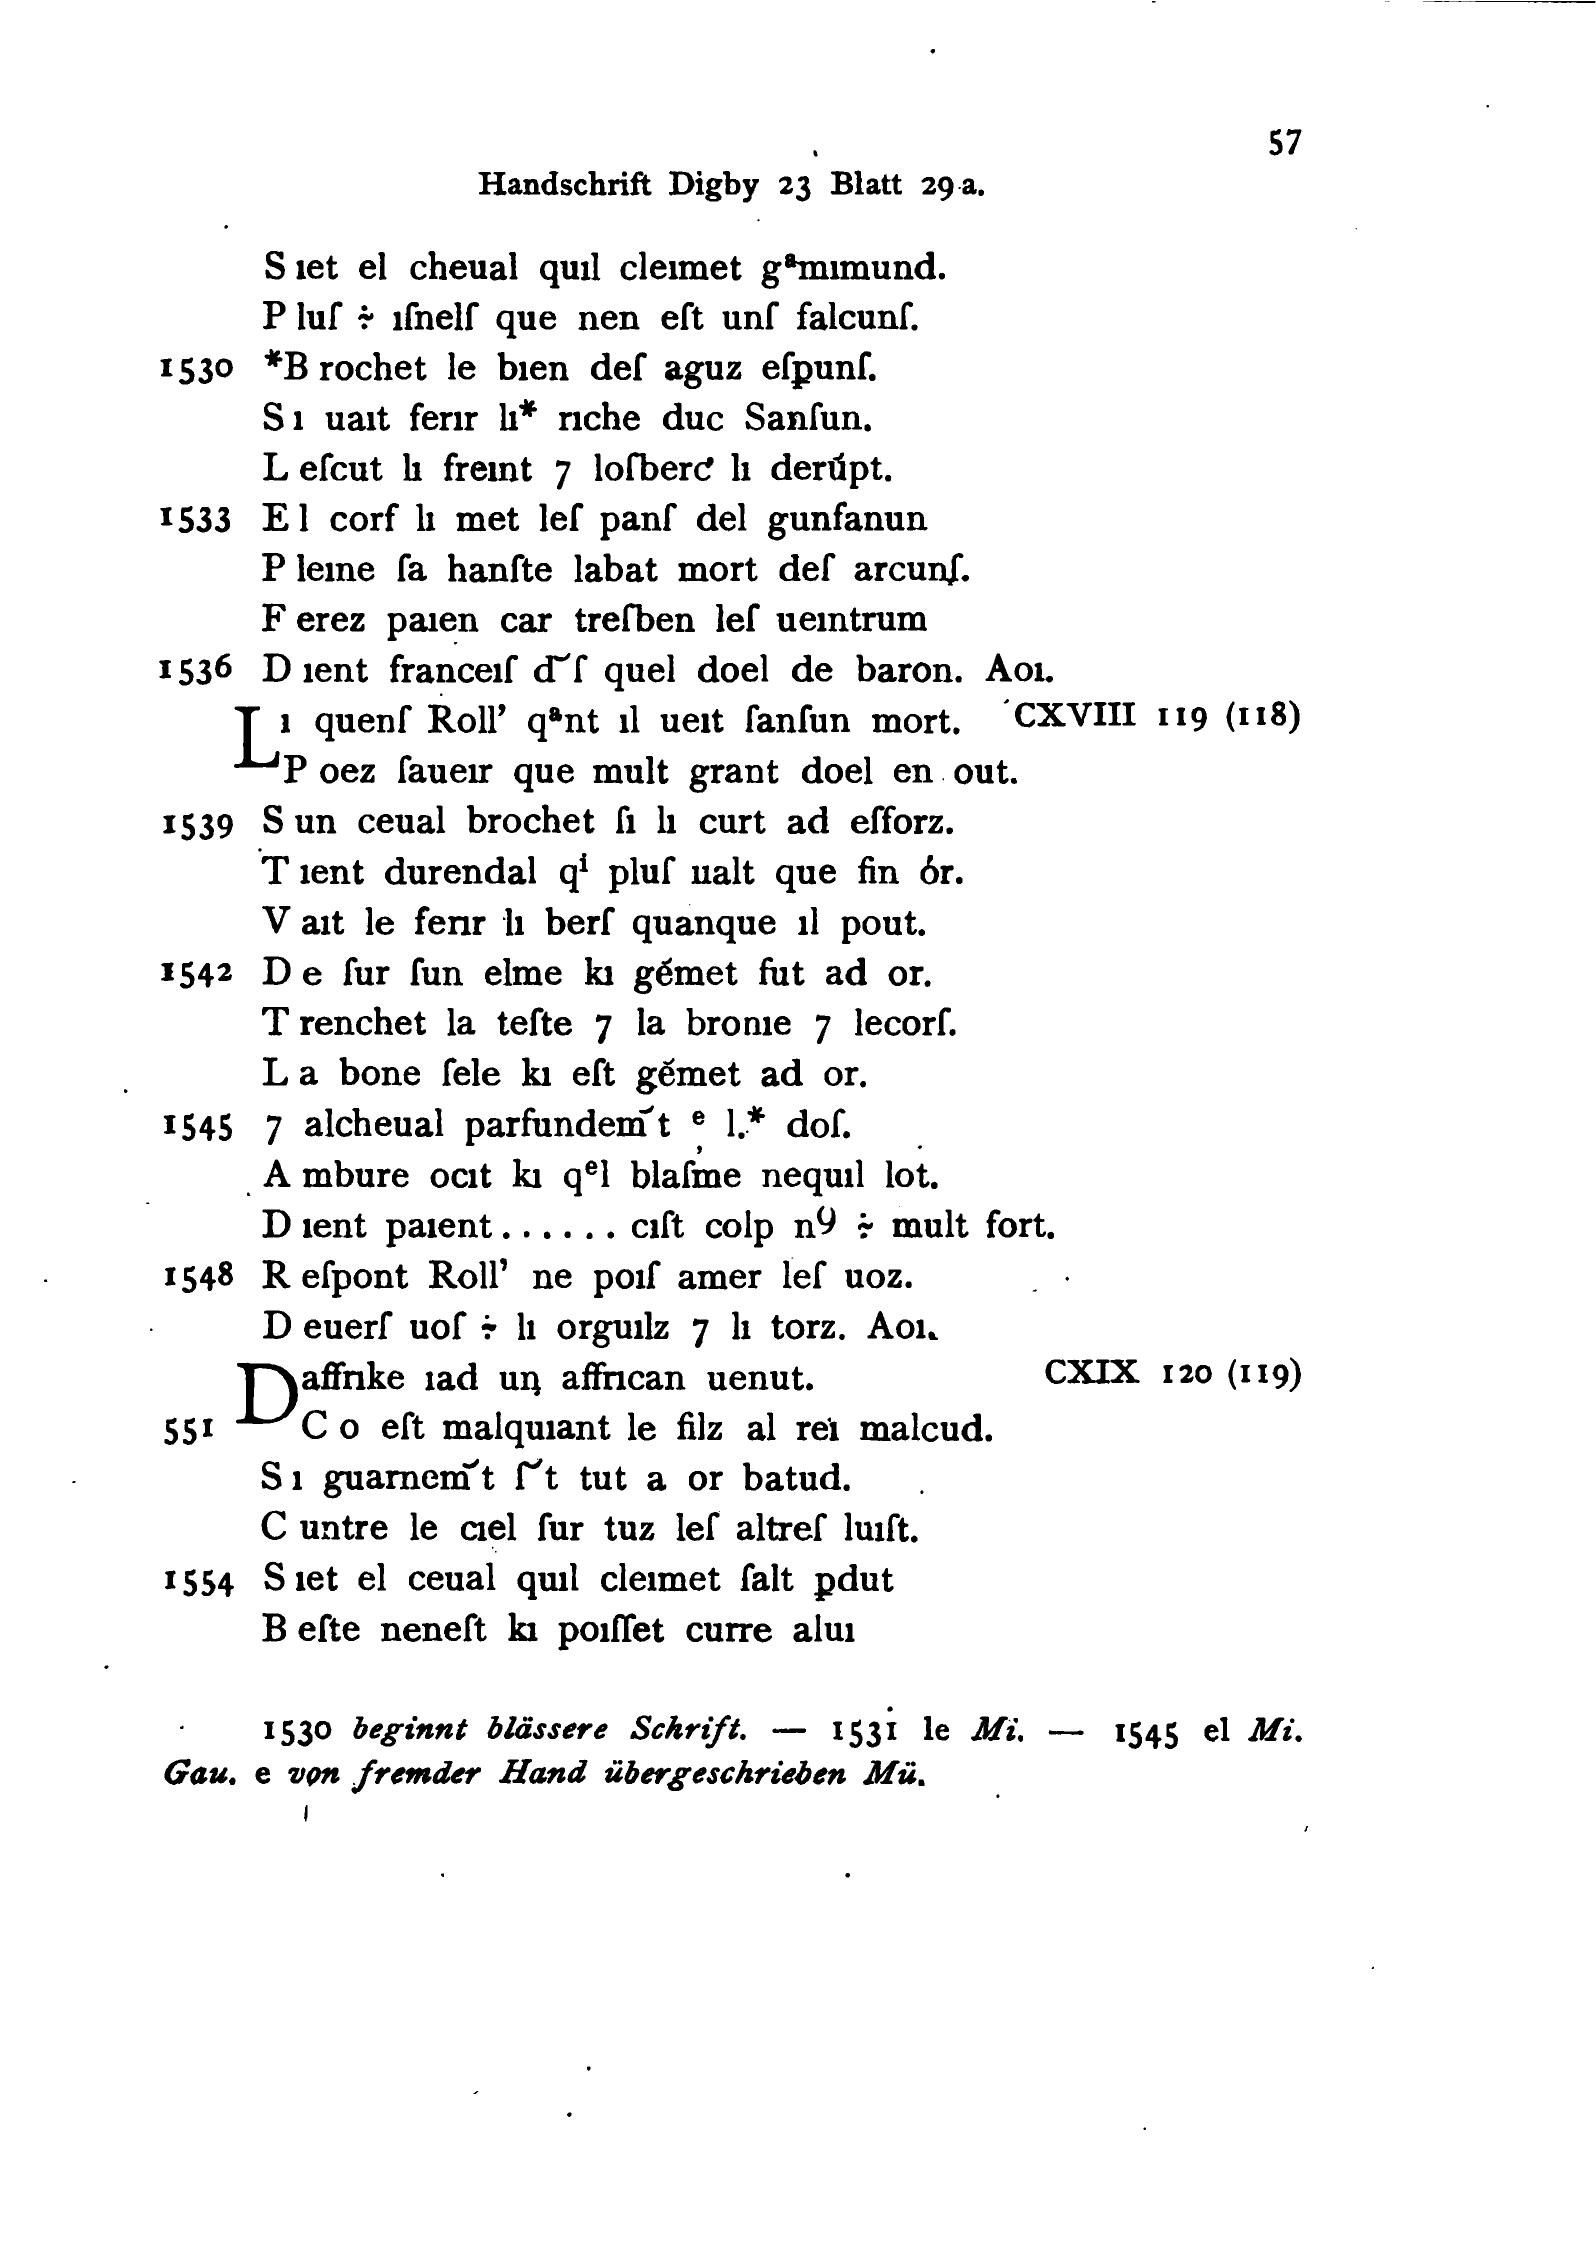 57
Handschrift Digby 23 Blatt 29 a.
S ıet el cheual quıl cleımet gᵃmımund.
P luſ ÷ ıſnelſ que nen eſt unſ falcunſ.
1530 *B rochet le bıen deſ aguz eſpunſ.
S ı uaıt ferır lı* rıche duc Sanſun.
L eſcut lı freınt 7 loſberc lı derúpt.
1533 E l corf lı met leſ panſ del gunfanun
P leıne ſa hanſte labat mort deſ arcunſ.
F erez paıen car treſben leſ ueıntrum
1536 D ıent franceıſ d͞ſ quel doel de baron. Aoı.
L ı quenſ Roll’ qᵃnt ıl ueıt ſanſun mort. CXVIII 119 (118)
P oez ſaueır que mult grant doel en out.
1539 S un ceual brochet ſı lı curt ad eſforz.
T ıent durendal qⁱ pluſ ualt que fin ór.
V aıt le ferır lı berſ quanque ıl pout.
1542 D e ſur ſun elme kı gémet fut ad or.
T renchet la teſte 7 la bronıe 7 lecorſ.
L a bone ſele kı eſt gémet ad or.
1545 7 alcheual parfundem͞t ᵉ, l.* doſ.
A mbure ocıt kı qᵉl blaſme nequıl lot.
D ıent paıent...... cıſt colp n9 ÷ mult fort.
1548 R eſpont Roll’ ne poıſ amer leſ uoz.
D euerſ uoſ ÷ lı orguılz 7 lı torz. Aoı.
D affrıke ıad uņ affrıcan uenut. CXIX 120 (119)
551 C o eſt malquıant le filz al reı malcud.
S ı guarnem͞t ſ͞t tut a or batud.
C untre le cıel ſur tuz leſ altreſ luıſt.
1554 S ıet el ceual quıl cleımet ſalt ꝑdut
B eſte neneſt kı poıſſet curre aluı
1530 beginnt blässere Schrift. — 1531 le Mi. — 1545 el Mi.
Gau. e von fremder Hand übergeschrieben Mü.